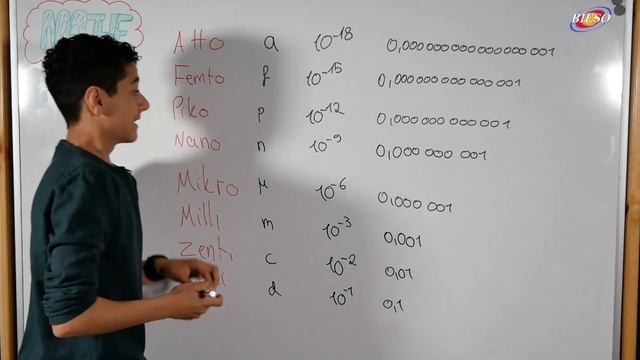 MATHE
BIESO
Atto a 10⁻¹⁸ 0,000000000000000001
Femto f 10⁻¹⁵ 0,000 000 000 000 001
Piko p 10⁻¹² 0,000 000 000 001
Nano n 10⁻⁹ 0,000 000 001
Mikro μ 10⁻⁶ 0,000 001
Milli m 10⁻³ 0,001
Zenti c 10⁻² 0,01
d 10⁻¹ 0,1